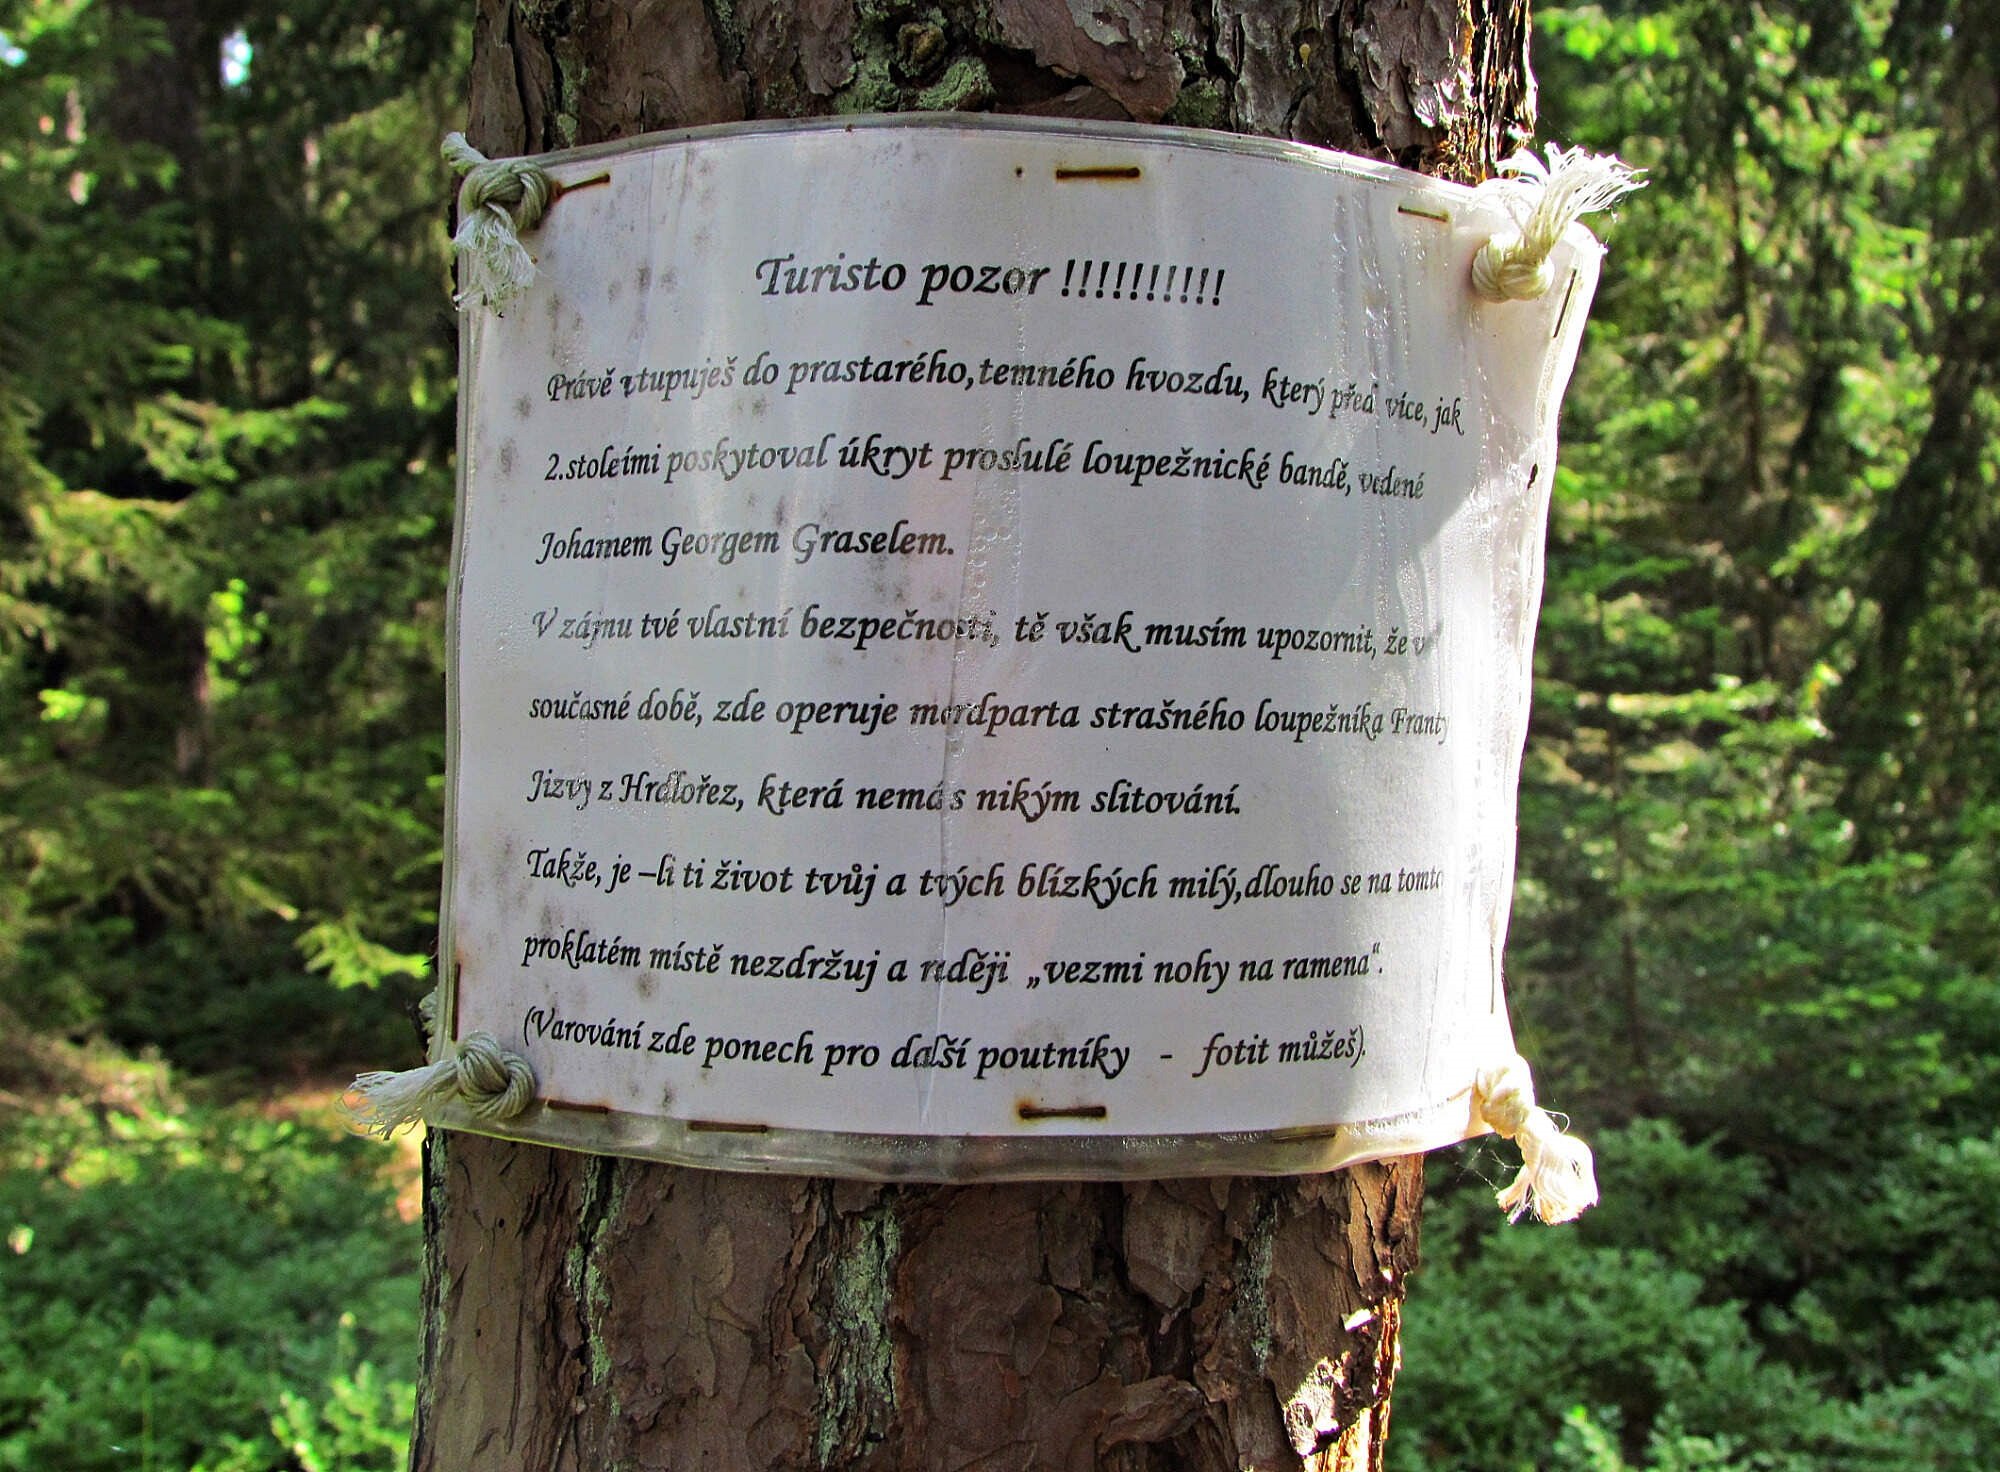 Turisto pozor !!!!!!!!!!
Právě vtupuješ do prastarého,temného hvozdu, který před více, jak
2.stoleími poskytoval úkryt proslulé loupežnické bandě, vedené
Johamem Georgem Graselem.
V zájmu tvé vlastní bezpečnosti, tě však musím upozornit, že v
současné době, zde operuje mordparta strašného loupežníka Franty
Jizvy z Hrdlořez, která nemá s nikým slitování.
Takže, je –li ti život tvůj a tvých blízkých milý,dlouho se na tomto
proklatém místě nezdržuj a raději „vezmi nohy na ramena“.
(Varování zde ponech pro další poutníky - fotit můžeš).